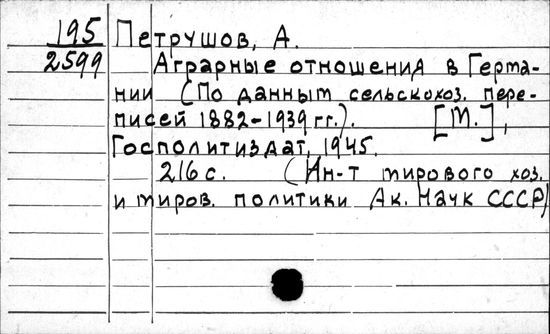 195 Петрушов, А.
2599 Аграрные отношения в Герма-
нии (По данным сельскохоз. пере-
писей 1882-1939 гг.). [М.],
Госполитиздат, 1945.
216 с. (Ин-т мирового хоз.
и миров. политики Ак. Наук СССР)